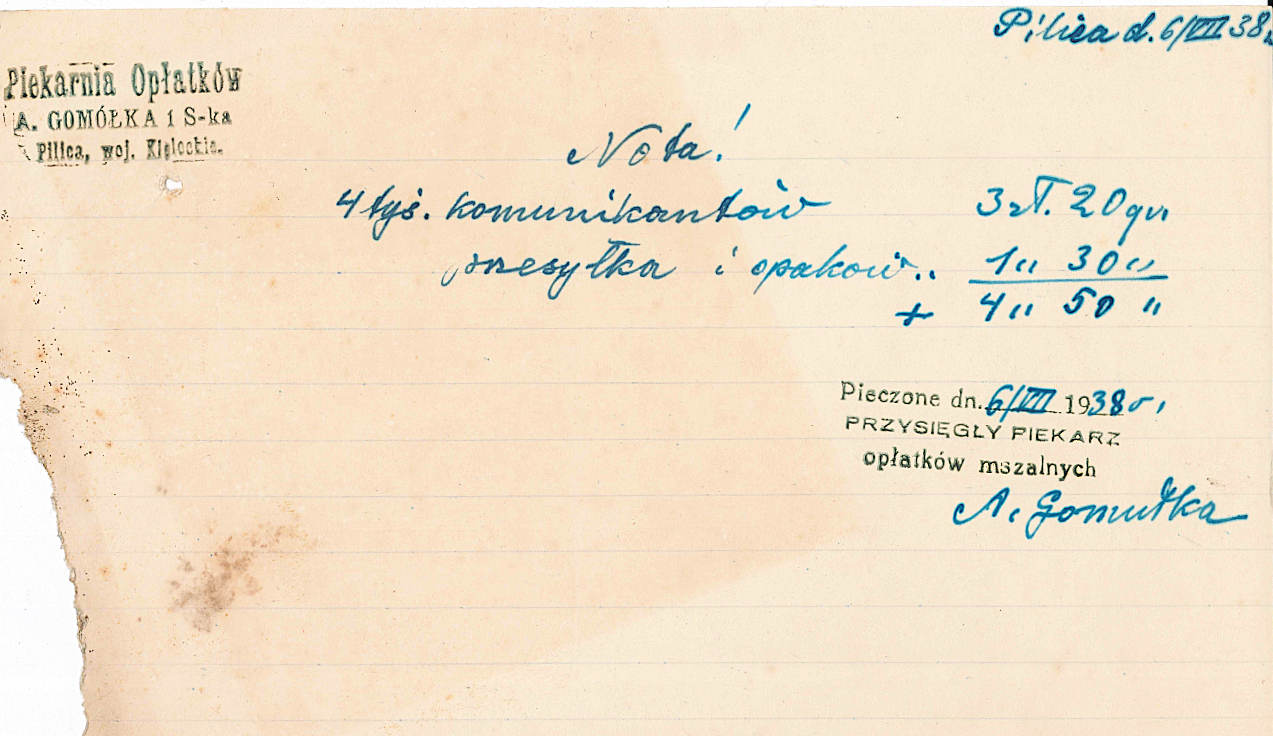 Pilica d. 6/VII 38
Piekarnia Opłatków
A. GOMÓŁKA i S-ka
Pilica, woj. Kieleckie.
Nota!
4 tyś. komunikantów 3 zł. 20 gr.
przesyłka i opakow.. 1 " 30 "
+ 4 " 50 "
Pieczone dn. 6/VII 1938 r.
PRZYSIĘGŁY PIEKARZ
opłatków mszalnych
A. Gomułka